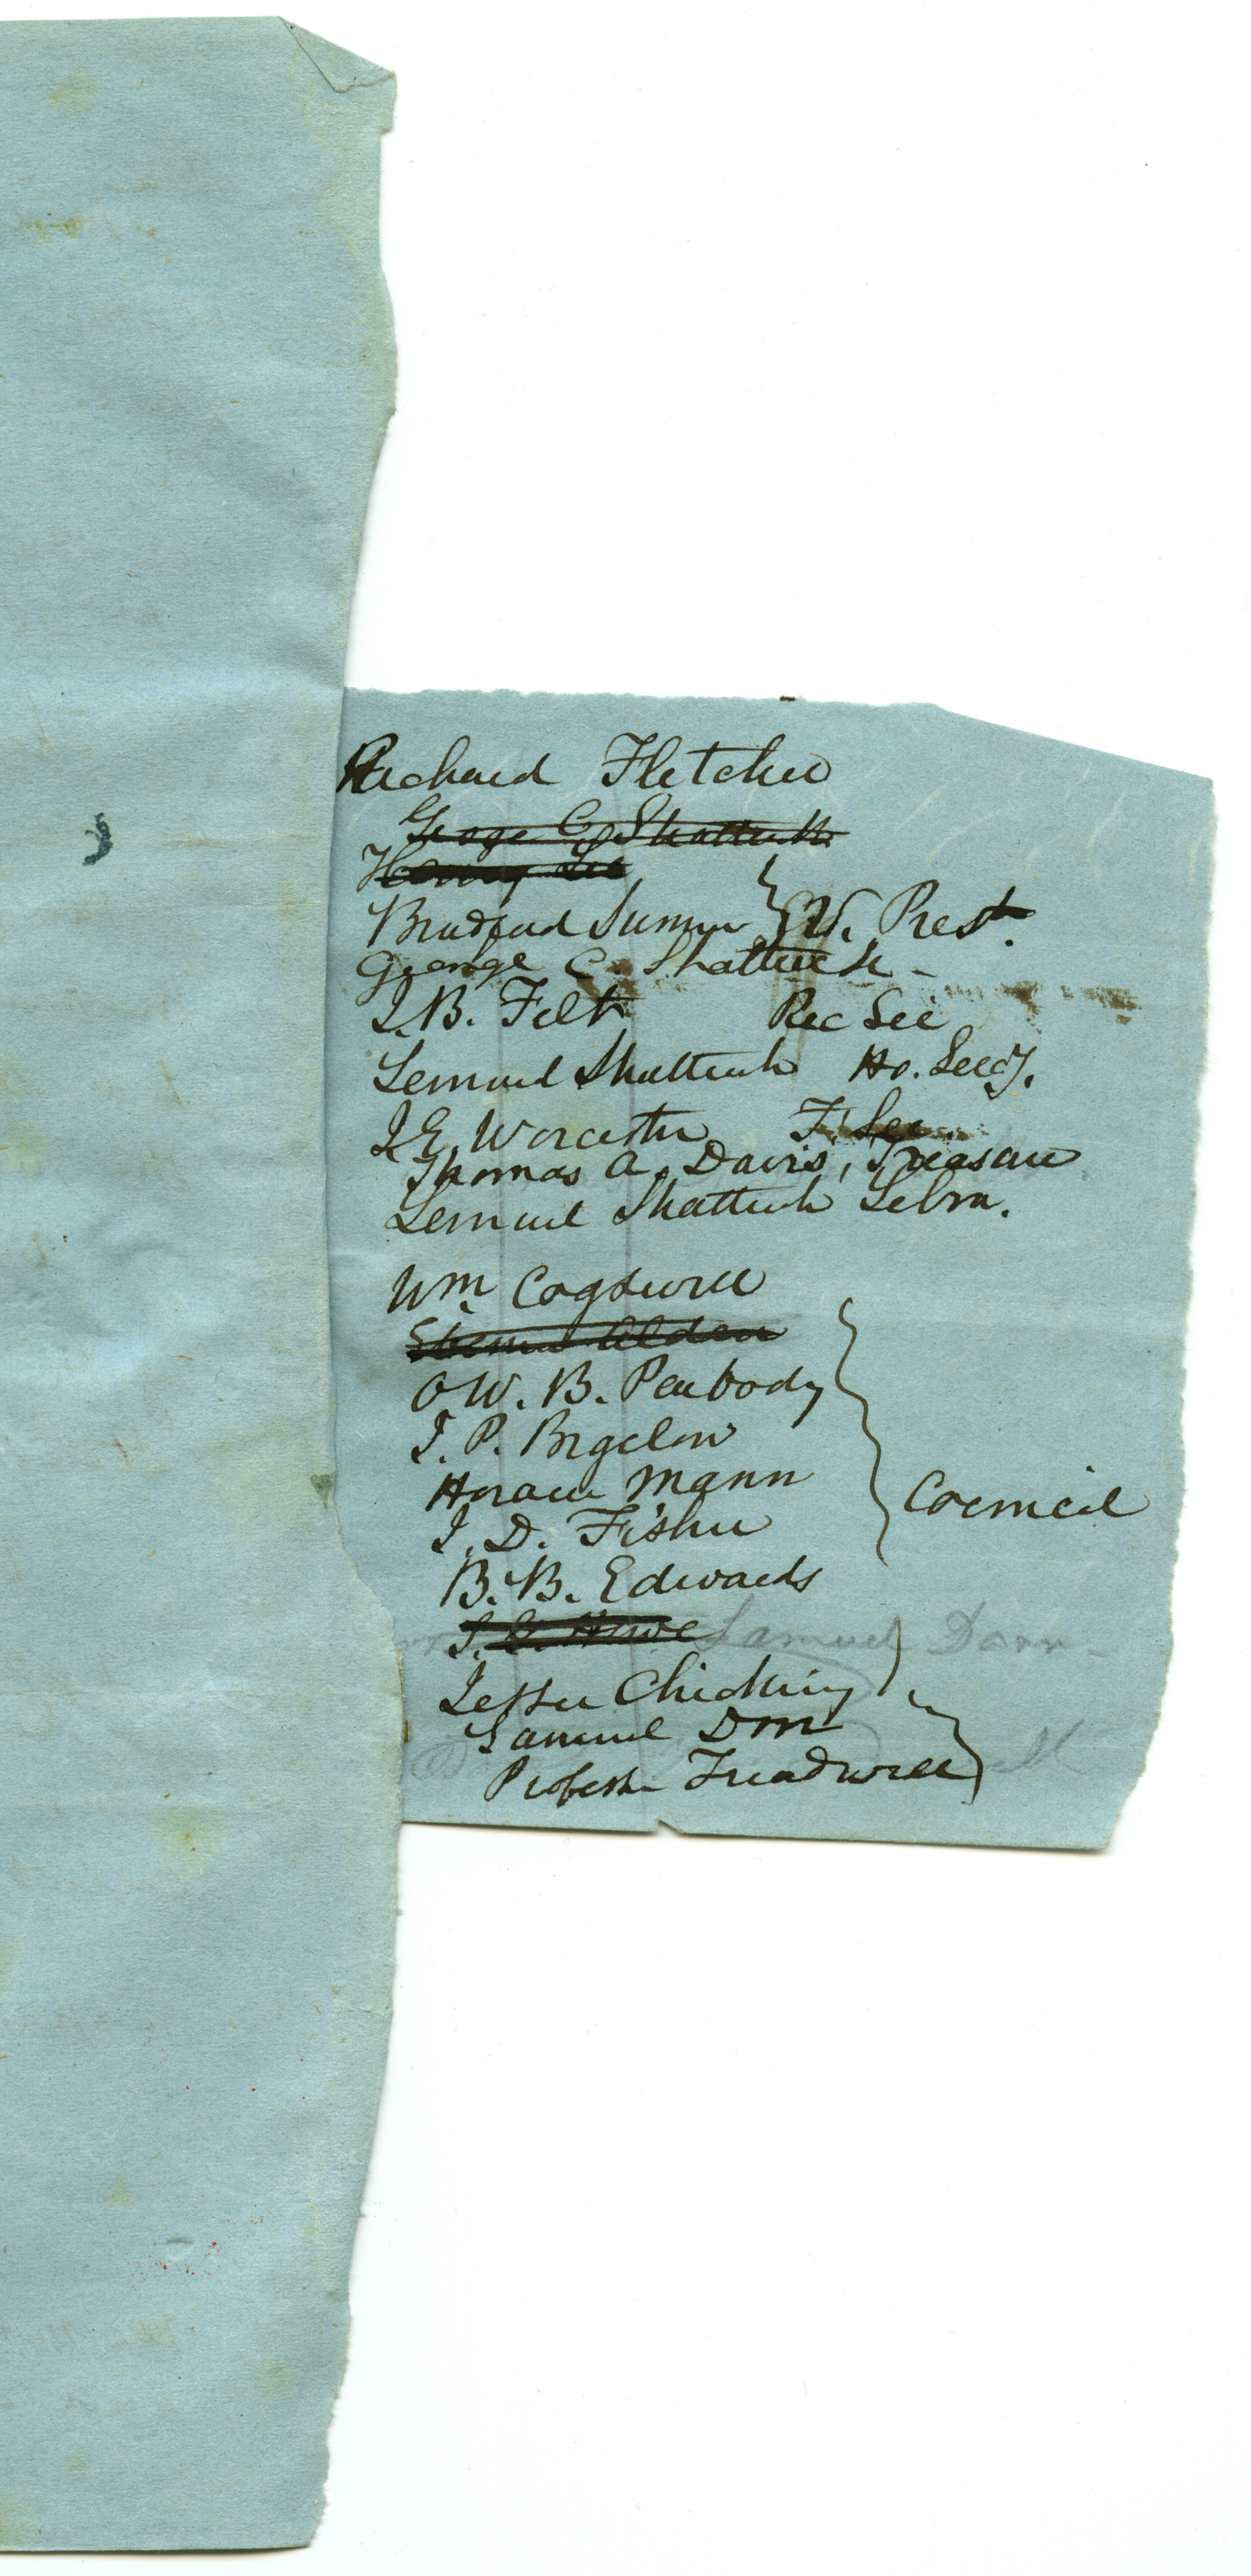 Richard Fletcher
George C. Shattuck
Henry Lee
Bradford Sumner } V. Prest.
George C. Shattuck -
J. B. Felt Rec Sec
Lemuel Shattuck Ho. Secy.
J. E. Worcester F. Sec.
Thomas A. Davis, Treasure
Lemuel Shattuck Libra.
Wm. Cogswell
Alden
O W. B. Peabody
J. P. Bigelow
Horace Mann
J. D. Fisher
B. B. Edwards
Council
S. G. Howe Samuel Dorr -
Jesse Chickering
Samuel Dorr
Professor Treadwell